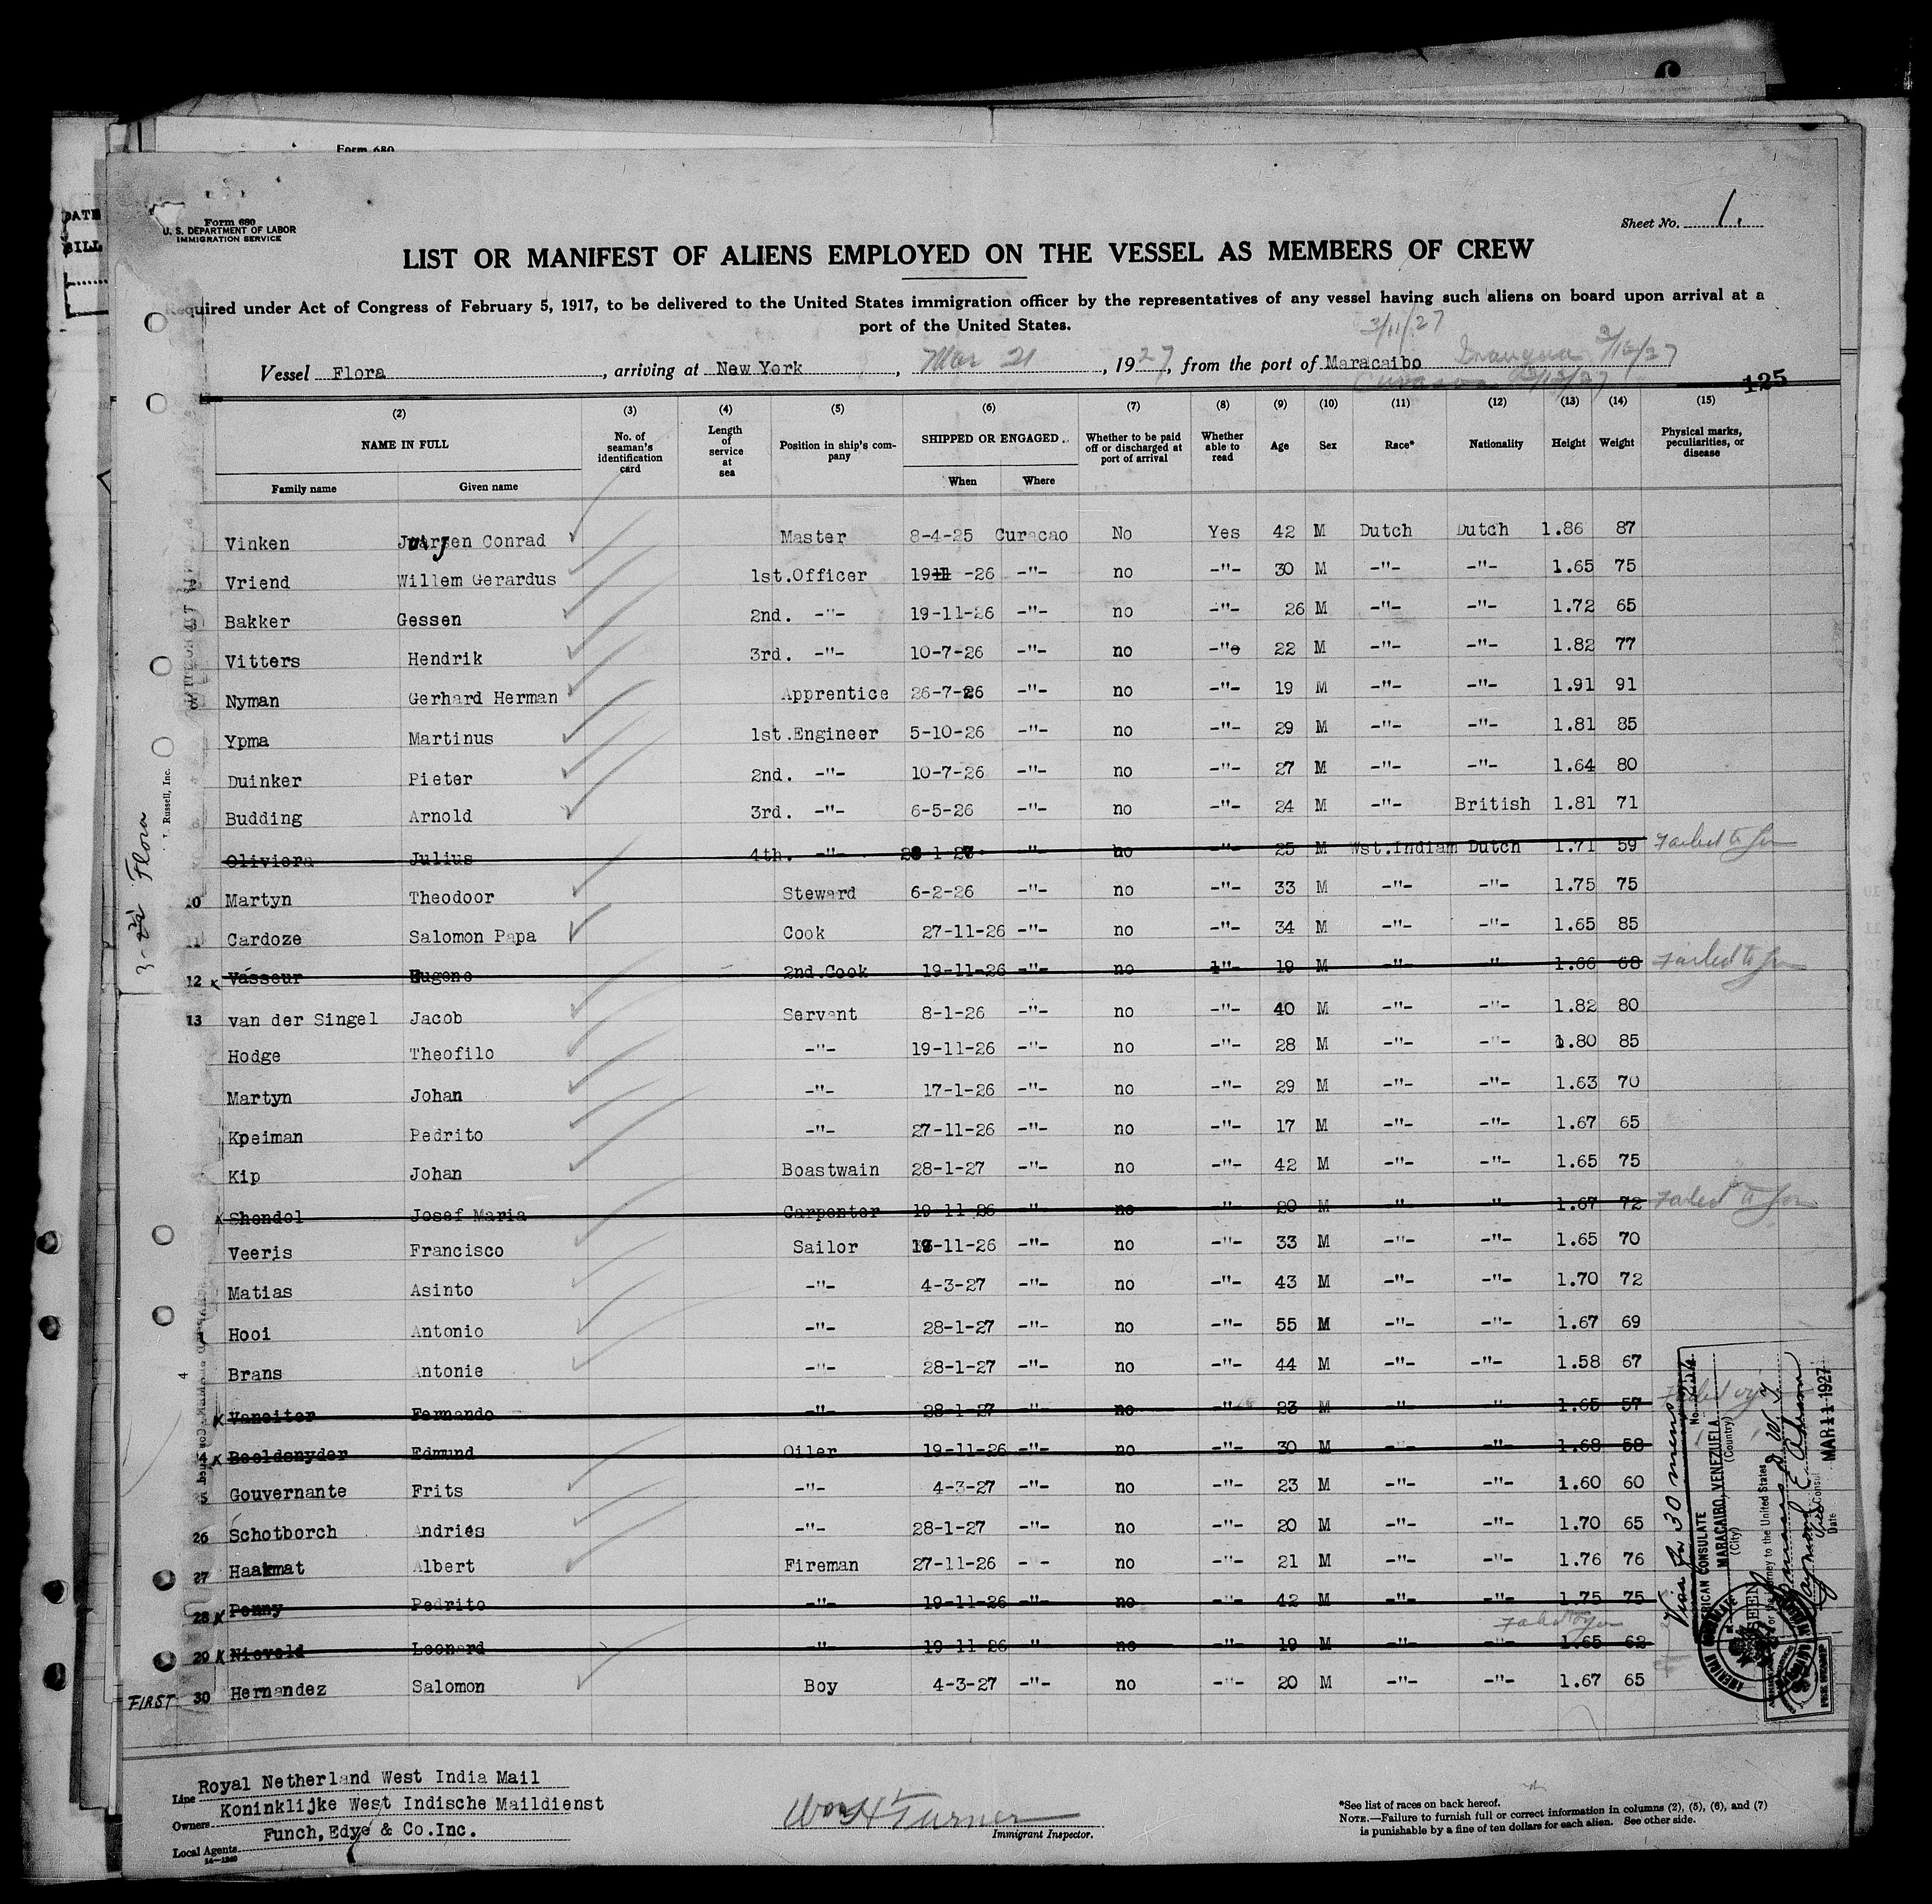 Form 680
DATE
BILL
Form 680
U. S. DEPARTMENT OF LABOR
IMMIGRATION SERVICE
Sheet No. 1.
LIST OR MANIFEST OF ALIENS EMPLOYED ON THE VESSEL AS MEMBERS OF CREW
Required under Act of Congress of February 5, 1917, to be delivered to the United States immigration officer by the representatives of any vessel having such aliens on board upon arrival at a
port of the United States.
3/11/27
Vessel Flora, arriving at New York, Mar 21, 1927, from the port of Maracaibo
Curacao 3/12/27
125
(2) (3) (4) (5) (6) (7) (8) (9) (10) (11) (12) (13) (14) (15)
NAME IN FULL No. of seaman's identification card Length of service at sea Position in ship's company SHIPPED OR ENGAGED Whether to be paid off or discharged at port of arrival Whether able to read Age Sex Race* Nationality Height Weight Physical marks, peculiarities, or disease
Family name Given name When Where
Vinken Jurjen Conrad Master 8-4-25 Curacao No Yes 42 M Dutch Dutch 1.86 87
Vriend Willem Gerardus 1st.Officer 19-11-26 -"- no -"- 30 M -"- -"- 1.65 75
Bakker Gessen 2nd. -"- 19-11-26 -"- no -"- 26 M -"- -"- 1.72 65
Vitters Hendrik 3rd. -"- 10-7-26 -"- no -"- 22 M -"- -"- 1.82 77
5 Nyman Gerhard Herman Apprentice 26-7-26 -"- no -"- 19 M -"- -"- 1.91 91
Ypma Martinus 1st.Engineer 5-10-26 -"- no -"- 29 M -"- -"- 1.81 85
Duinker Pieter 2nd. -"- 10-7-26 -"- no -"- 27 M -"- -"- 1.64 80
Budding Arnold 3rd. -"- 6-5-26 -"- no -"- 24 M -"- British 1.81 71
Oliviera Julius 4th. -"- 28-1-27 -"- no -"- 25 M Wst.Indian Dutch 1.71 59 Failed to Join
10 Martyn Theodoor Steward 6-2-26 -"- no -"- 33 M -"- -"- 1.75 75
11 Cardoze Salomon Papa Cook 27-11-26 -"- no -"- 34 M -"- -"- 1.65 85
12 x Vasseur Eugene 2nd.Cook 19-11-26 -"- no -"- 19 M -"- -"- 1.66 68 Failed to Join
13 van der Singel Jacob Servant 8-1-26 -"- no -"- 40 M -"- -"- 1.82 80
Hodge Theofilo -"- 19-11-26 -"- no -"- 28 M -"- -"- 1.80 85
Martyn Johan -"- 17-1-26 -"- no -"- 29 M -"- -"- 1.63 70
Kpeiman Pedrito -"- 27-11-26 -"- no -"- 17 M -"- -"- 1.67 65
Kip Johan Boastwain 28-1-27 -"- no -"- 42 M -"- -"- 1.65 75
x Shendol Josef Maria Carpenter 19-11-26 -"- no -"- 20 M -"- -"- 1.67 72 Failed to Join
Veeris Francisco Sailor 19-11-26 -"- no -"- 33 M -"- -"- 1.65 70
Matias Asinto -"- 4-3-27 -"- no -"- 43 M -"- -"- 1.70 72
Hooi Antonio -"- 28-1-27 -"- no -"- 55 M -"- -"- 1.67 69
Brans Antonie -"- 28-1-27 -"- no -"- 44 M -"- -"- 1.58 67
x Vaneiter Fernando -"- 28-1-27 -"- no -"- 23 M -"- -"- 1.65 57
24 x Beeldsnyder Edmund Oiler 19-11-26 -"- no -"- 30 M -"- -"- 1.68 58
25 Gouvernante Frits -"- 4-3-27 -"- no -"- 23 M -"- -"- 1.60 60
26 Schotborch Andries -"- 28-1-27 -"- no -"- 20 M -"- -"- 1.70 65
27 Haakmat Albert Fireman 27-11-26 -"- no -"- 21 M -"- -"- 1.76 76
28 x Penny Pedrito -"- 19-11-26 -"- no -"- 42 M -"- -"- 1.75 75
29 x Nieveld Leonard -"- 19-11-26 -"- no -"- 19 M -"- -"- 1.65 62
FIRST 30 Hernandez Salomon Boy 4-3-27 -"- no -"- 20 M -"- -"- 1.67 65
Flora
Russell, Inc.
Visa for 30 mens
No.
AMERICAN CONSULATE
MARACAIBO, VENEZUELA
(City) (Country)
SEEN
For the journey to the United States
Vice Consul
Date MAR 11 1927
Line Royal Netherland West India Mail
Owners Koninklijke West Indische Maildienst
Local Agents Funch,Edye & Co.Inc.
Wm H Turner
Immigrant Inspector.
*See list of races on back hereof.
NOTE.—Failure to furnish full or correct information in columns (2), (5), (6), and (7)
is punishable by a fine of ten dollars for each alien. See other side.